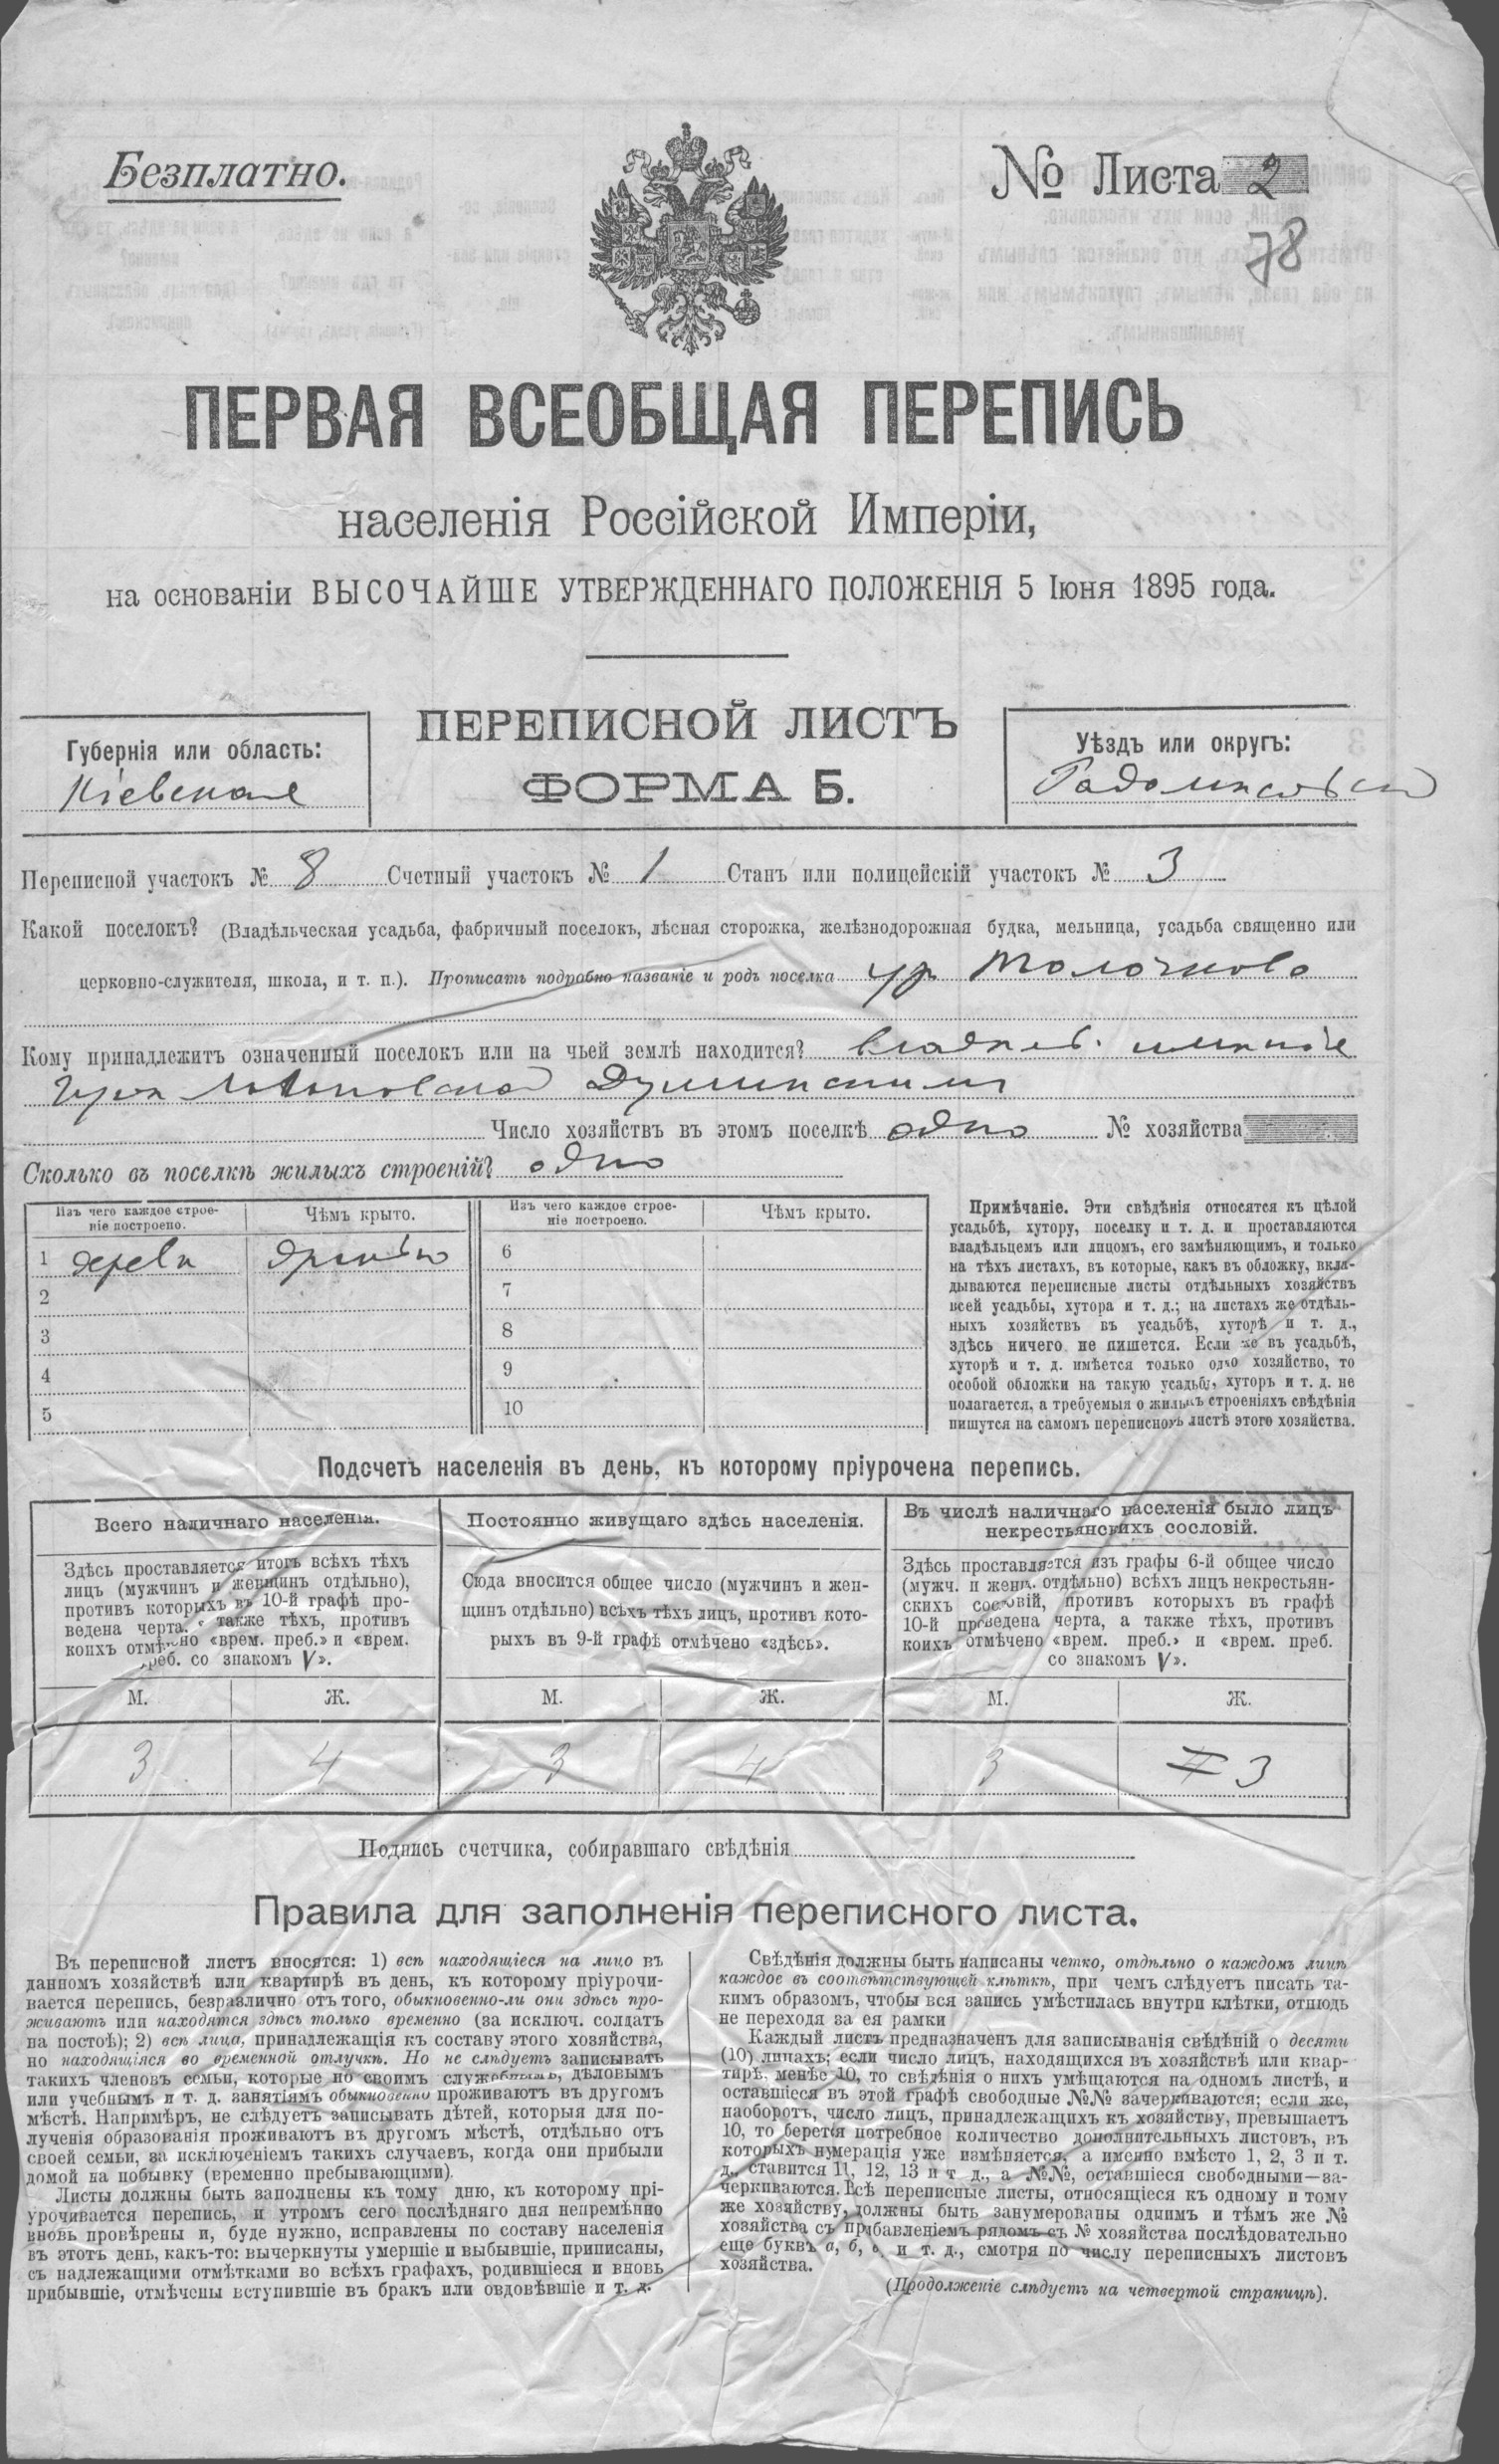 Безплатно.
№ Листа 2
78
ПЕРВАЯ ВСЕОБЩАЯ ПЕРЕПИСЬ
населенія Россійской Имперіи,
на основаніи ВЫСОЧАЙШЕ УТВЕРЖДЕННАГО ПОЛОЖЕНІЯ 5 Іюня 1895 года.
ПЕРЕПИСНОЙ ЛИСТЪ
ФОРМА Б.
Губернія или область:
Кіевская
Уѣздъ или округъ:
Радомысльскій
Переписной участокъ № 8 Счетный участокъ № 1 Станъ или полицейскій участокъ № 3
Какой поселокъ? (Владѣльческая усадьба, фабричный поселокъ, лѣсная сторожка, желѣзнодорожная будка, мельница, усадьба священно или
церковно-служителя, школа, и т. п.). Прописать подробно названіе и родъ поселка ур. Толочково
Кому принадлежитъ означенный поселокъ или на чьей землѣ находится?
Число хозяйствъ въ этомъ поселкѣ одно № хозяйства
Сколько въ поселкѣ жилыхъ строеній? одно
Изъ чего каждое строе-
ніе построено.
Чѣмъ крыто.
Изъ чего каждое строе-
ніе построено.
Чѣмъ крыто.
1 дерева
2
3
4
5
6
7
8
9
10
Примѣчаніе. Эти свѣдѣнія относятся къ цѣлой
усадьбѣ, хутору, поселку и т. д. и проставляются
владѣльцемъ или лицомъ, его замѣняющимъ, и только
на тѣхъ листахъ, въ которые, какъ въ обложку, вкла-
дываются переписные листы отдѣльныхъ хозяйствъ
всей усадьбы, хутора и т. д.; на листахъ же отдѣль-
ныхъ хозяйствъ въ усадьбѣ, хуторѣ и т. д.,
здѣсь ничего не пишется. Если же въ усадьбѣ,
хуторѣ и т. д. имѣется только одно хозяйство, то
особой обложки на такую усадьбу, хуторъ и т. д. не
полагается, а требуемыя о жилыхъ строеніяхъ свѣдѣнія
пишутся на самомъ переписномъ листѣ этого хозяйства.
Подсчетъ населенія въ день, къ которому пріурочена перепись.
Всего наличнаго населенія.
Здѣсь проставляется итогъ всѣхъ тѣхъ
лицъ (мужчинъ и женщинъ отдѣльно),
противъ которыхъ въ 10-й графѣ про-
ведена черта, а также тѣхъ, противъ
коихъ отмѣчено «врем. преб.» и «врем.
преб. со знакомъ V».
Постоянно живущаго здѣсь населенія.
Сюда вносится общее число (мужчинъ и жен-
щинъ отдѣльно) всѣхъ тѣхъ лицъ, противъ кото-
рыхъ въ 9-й графѣ отмѣчено «здѣсь».
Въ числѣ наличнаго населенія было лицъ
некрестьянскихъ сословій.
Здѣсь проставляется изъ графы 6-й общее число
(мужч. и женщ. отдѣльно) всѣхъ лицъ некрестьян-
скихъ сословій, противъ которыхъ въ графѣ
10-й проведена черта, а также тѣхъ, противъ
коихъ отмѣчено «врем. преб.» и «врем. преб.
со знакомъ V».
М. Ж. М. Ж. М. Ж.
3 4 3 4 3 4 3
Подпись счетчика, собиравшаго свѣдѣнія
Правила для заполненія переписного листа.
Въ переписной листъ вносятся: 1) всѣ находящіеся на лицо въ
данномъ хозяйствѣ или квартирѣ въ день, къ которому пріурочи-
вается перепись, безразлично отъ того, обыкновенно-ли они здѣсь про-
живаютъ или находятся здѣсь только временно (за исключ. солдатъ
на постоѣ); 2) всѣ лица, принадлежащія къ составу этого хозяйства,
но находящіяся во временной отлучкѣ. Но не слѣдуетъ записывать
такихъ членовъ семьи, которые по своимъ служебнымъ, дѣловымъ
или учебнымъ и т. д. занятіямъ обыкновенно проживаютъ въ другомъ
мѣстѣ. Напримѣръ, не слѣдуетъ записывать дѣтей, которыя для по-
лученія образованія проживаютъ въ другомъ мѣстѣ, отдѣльно отъ
своей семьи, за исключеніемъ такихъ случаевъ, когда они прибыли
домой на побывку (временно пребывающими).
Листы должны быть заполнены къ тому дню, къ которому прі-
урочивается перепись, и утромъ сего послѣдняго дня непремѣнно
вновь провѣрены и, буде нужно, исправлены по составу населенія
въ этотъ день, какъ-то: вычеркнуты умершіе и выбывшіе, приписаны,
съ надлежащими отмѣтками во всѣхъ графахъ, родившіеся и вновь
прибывшіе, отмѣчены вступившіе въ бракъ или овдовѣвшіе и т. д.
Свѣдѣнія должны быть написаны четко, отдѣльно о каждомъ лицѣ
каждое въ соотвѣтствующей клѣткѣ, при чемъ слѣдуетъ писать та-
кимъ образомъ, чтобы вся запись умѣстилась внутри клѣтки, отнюдь
не переходя за ея рамки
Каждый листъ предназначенъ для записыванія свѣдѣній о десяти
(10) лицахъ; если число лицъ, находящихся въ хозяйствѣ или квар-
тирѣ, менѣе 10, то свѣдѣнія о нихъ умѣщаются на одномъ листѣ, и
оставшіеся въ этой графѣ свободные №№ зачеркиваются; если же,
наоборотъ, число лицъ, принадлежащихъ къ хозяйству, превышаетъ
10, то берется потребное количество дополнительныхъ листовъ, въ
которыхъ нумерація уже измѣняется, а именно вмѣсто 1, 2, 3 и т.
д., ставится 11, 12, 13 и т д., а №№, оставшіеся свободными—за-
черкиваются. Всѣ переписные листы, относящіеся къ одному и тому
же хозяйству, должны быть занумерованы однимъ и тѣмъ же №
хозяйства съ прибавленіемъ рядомъ съ № хозяйства послѣдовательно
еще буквъ а, б, в, и т. д., смотря по числу переписныхъ листовъ
хозяйства.
(Продолженіе слѣдуетъ на четвертой страницѣ).